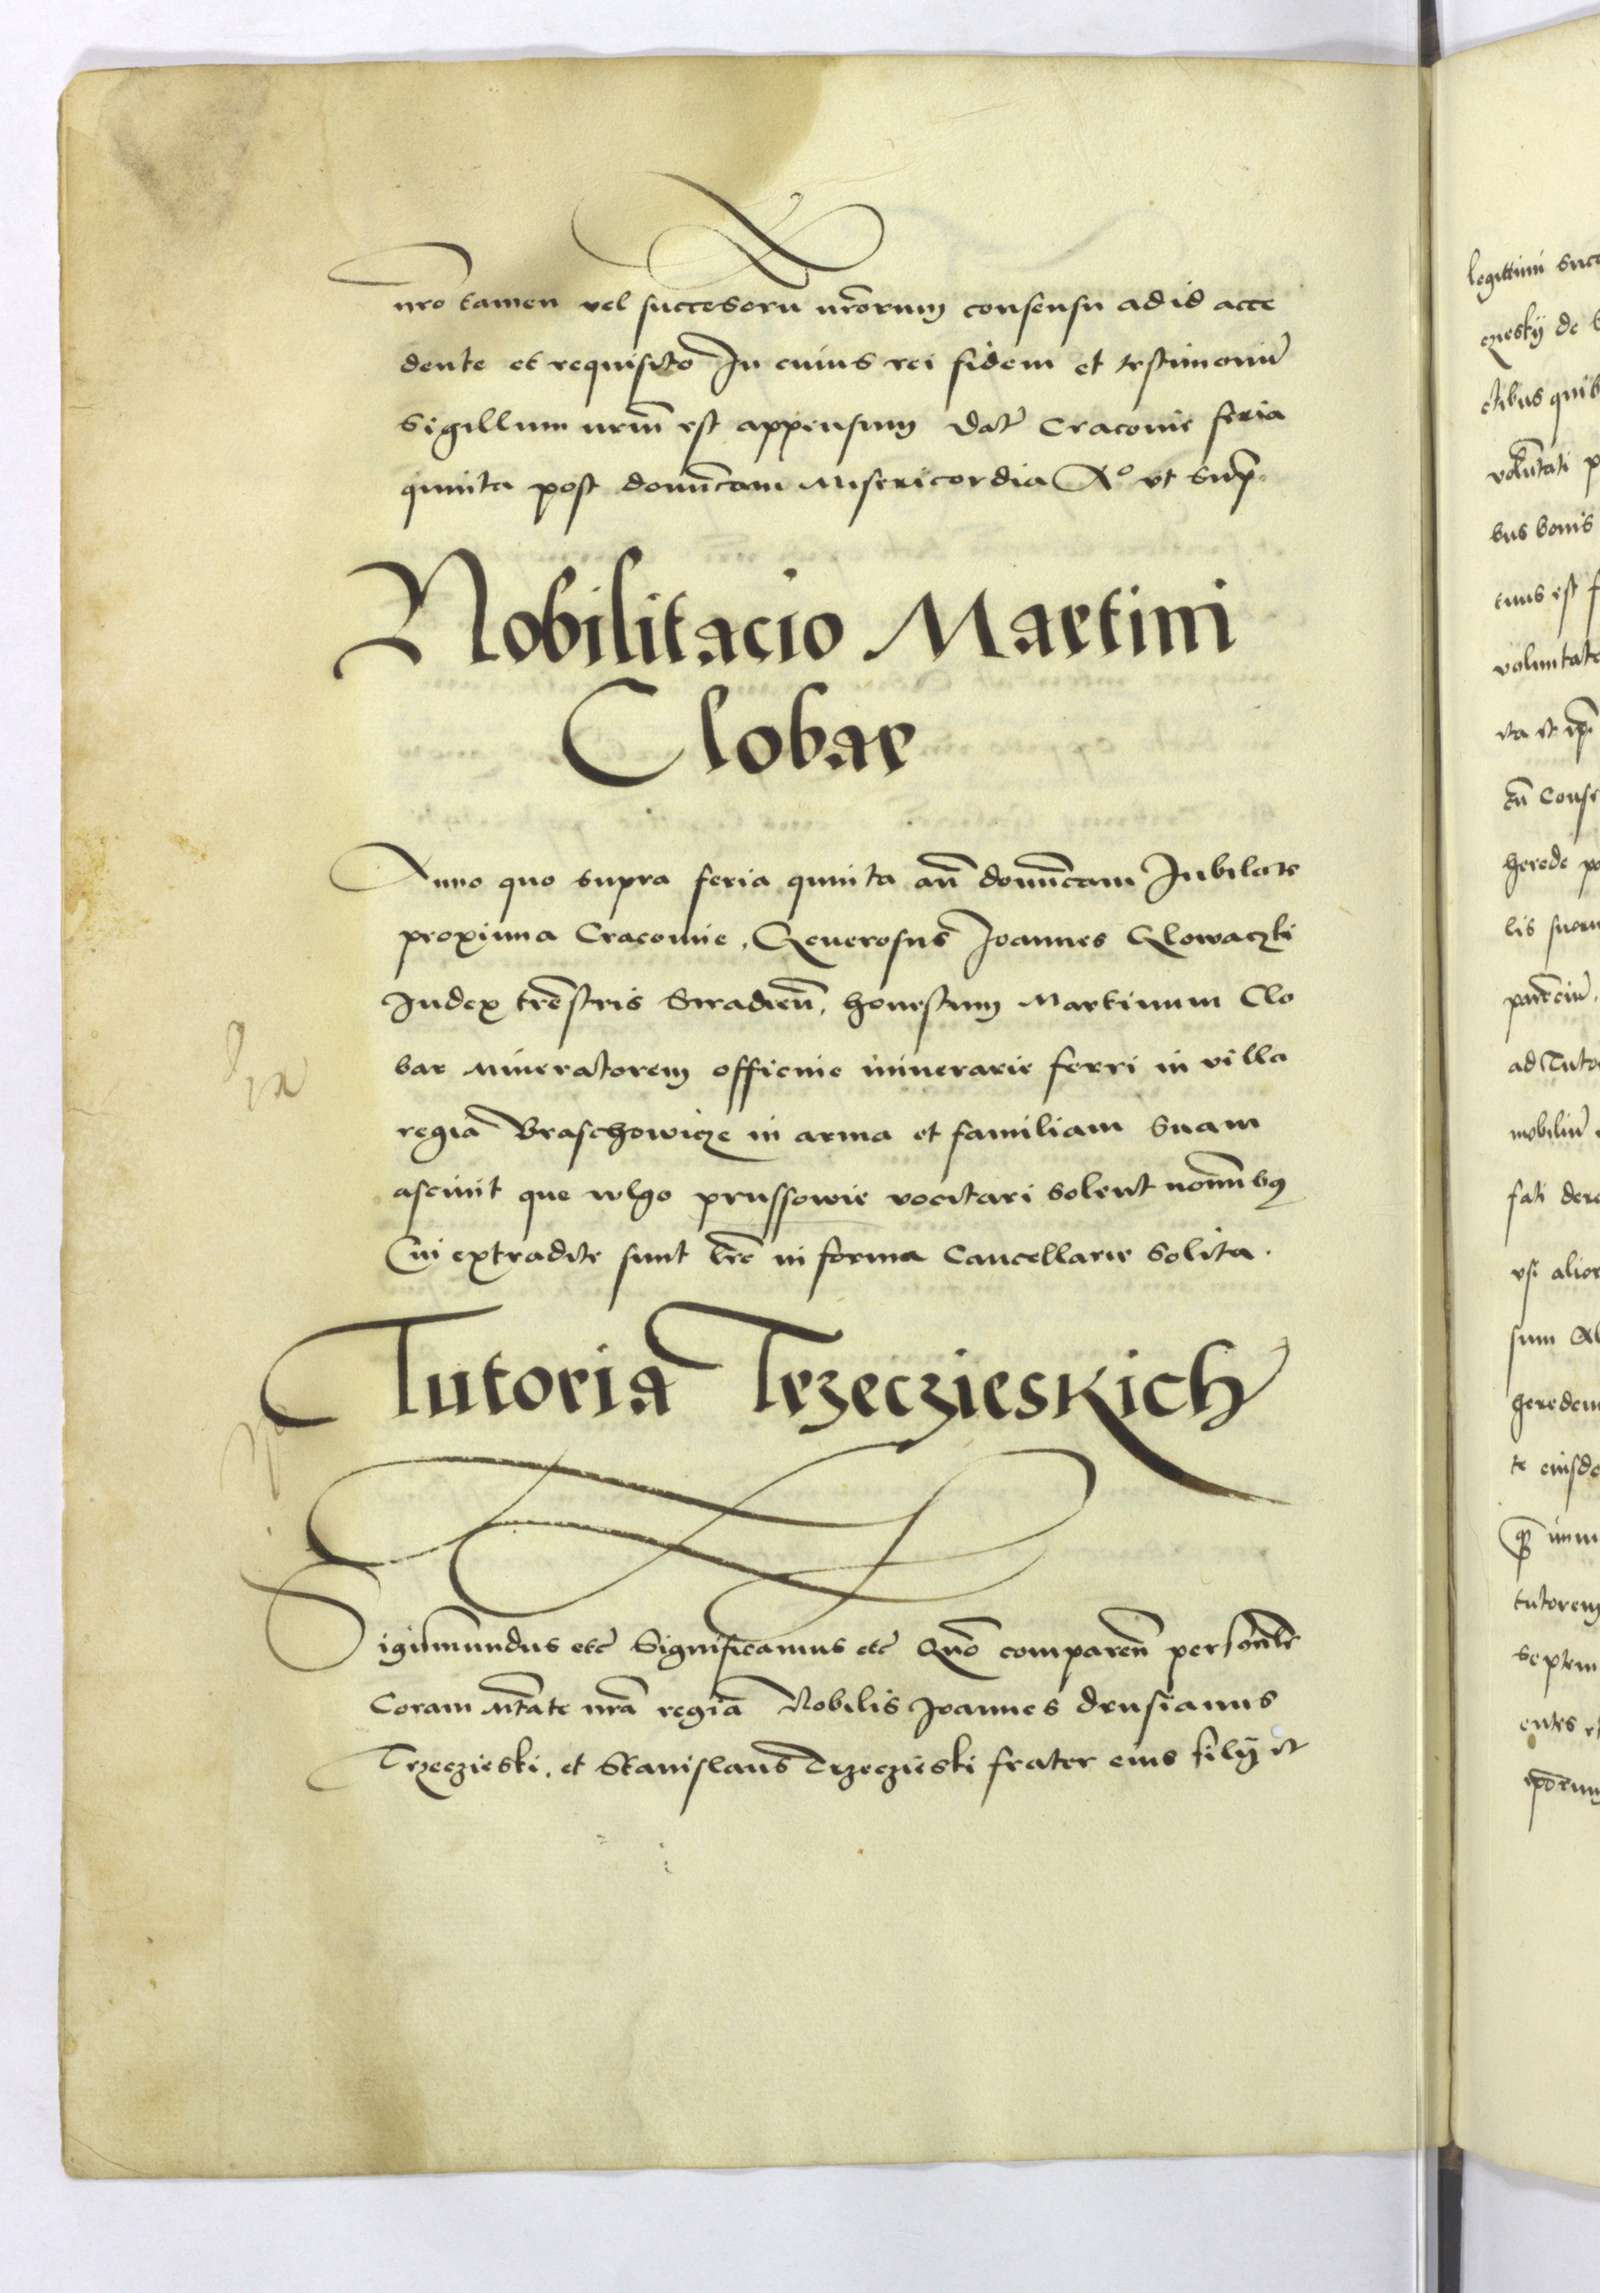 nro tamen vel successoru nrorum consensu ad id acce
dente et requisito In cuius rei fidem et testimoniu
Sigillum nrum est appensum Dat Cracovie feria
quinta post dominicam Misericordia Ao ut supra
Nobilitacio Martini
Clobar
Anno quo supra feria quinta an dominicam Jubilate
proxima Cracovie. Generosus Joannes Glowaczki
Judex trestris Siradien. honestum Martinum Clo
bar Mineratorem officine minerarie ferri in villa
regia Braschowicze in arma et familiam Suam
ascivit que wlgo prussowie vocitari solent nominibus
Cui extradite sunt lre in forma Cancellarie Solita.
Tutoria Trzeczieskich
Sigismundus etc Significamus etc Quo comparen personalr
Coram Mtate nra regia Nobilis Joannes drusianus
Trzeczieski. et Stanislaus Trzeczieski frater eius filij
legittimi
czesky de
ctibus
voluntati
bus bonis
cuius est
voluntate
herede
lis
ad Tuto
mobiliu
fati
sum
heredem
te
tutorem
Septem